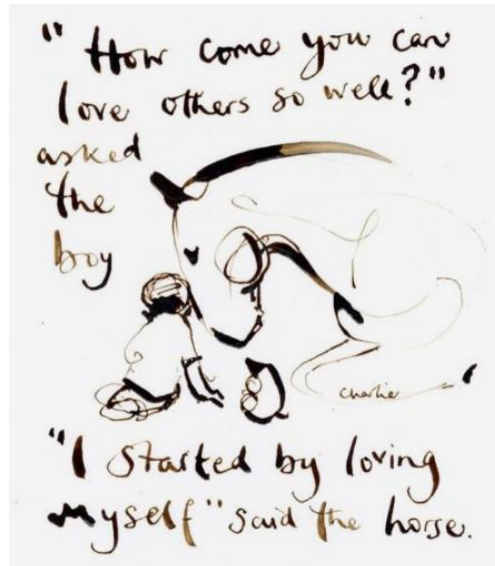 "How come you can
love others so well?"
asked
the
boy
charlie
"I started by loving
myself" said the horse.